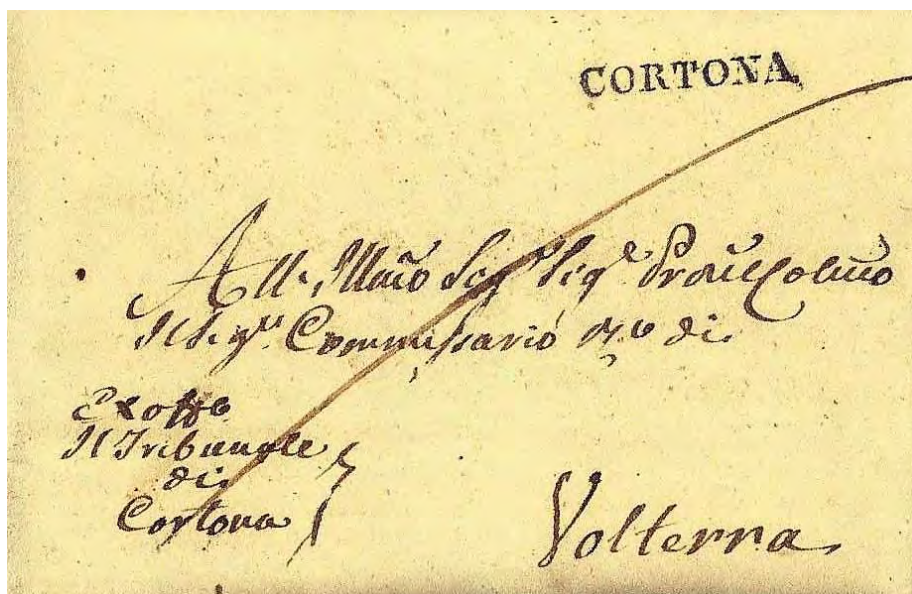 CORTONA
All. Illmo Sigr. Sigr. Prone Colmo
Il Sigr. Commissario Rio di
Exoffo
Il Tribunale
di
Cortona
Volterra